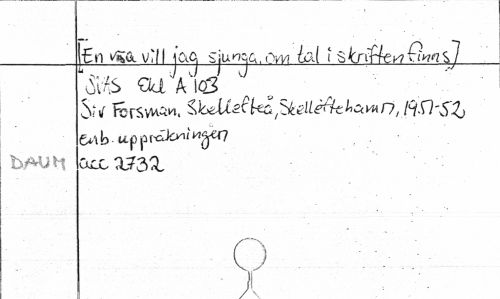 [En visa vill jag sjunga, om tal i skriften finns]
SITS Ekl A 103
Siv Forsman, Skellefteå, Skelleftehamn, 1951-52
enb. uppräkningen
DAUM acc 2732